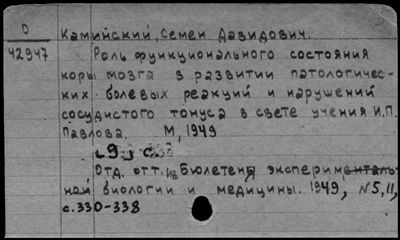 О
Каминский, Семен Давидович.
42947
Роль функционального состояния
коры мозга в развитии патологичес-
ких болевых реакций и нарушений
сосудистого тонуса в свете учения И.П.
Павлова. М, 1949
с.
Отд. отт. из Бюлетеня эксперименталь-
ной биологии и медицины. 1949, №5, 11,
с.330-338